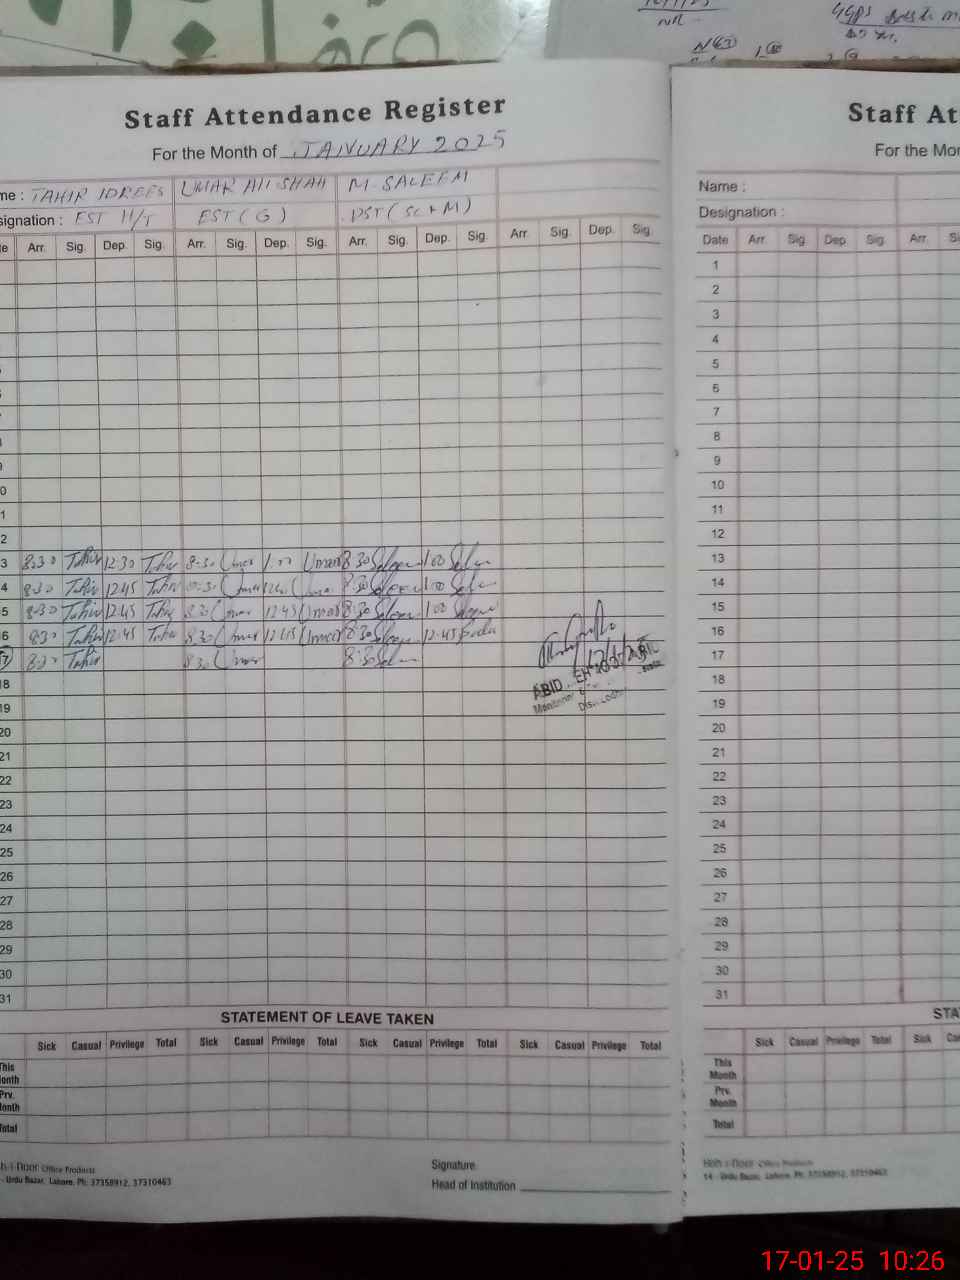 Staff Attendance Register
For the Month of JANUARY 2025
me : TAHIR IDREES UMAR ALI SHAH M. SALEEM
signation : EST H/T EST (G) PST (SC+M)
te Arr. Sig. Dep. Sig. Arr. Sig. Dep. Sig. Arr. Sig. Dep. Sig. Arr. Sig. Dep. Sig.
3 8:30 Tahir 12:30 Tahir 8:30 Umar 1:00 Umar 8:30 Saleem 1:00 Saleem
4 8:30 Tahir 12:45 Tahir 8:30 Umar Umar 8:30 Saleem 1:00
5 8:30 Tahir 12:45 Tahir 8:30 Umar 12:45 Umar 8:30 Saleem 1:00 Saleem
6 8:30 Tahir 12:45 Tahir 8:30 Umar Umar 8:30 Saleem 12:45
17 8:30 Tahir 8:30 Umar 8:30 Saleem
17/1/25
ABID
18
19
20
21
22
23
24
25
26
27
28
29
30
31
STATEMENT OF LEAVE TAKEN
Sick Casual Privilege Total Sick Casual Privilege Total Sick Casual Privilege Total Sick Casual Privilege Total
This
onth
Prv.
onth
Total
Office Products
- Urdu Bazar, Lahore. Ph: 37358912, 37310463
Signature
Head of Institution
Staff Att
For the Mon
Name :
Designation :
Date Arr. Sig. Dep. Sig. Arr. Si
1
2
3
4
5
6
7
8
9
10
11
12
13
14
15
16
17
18
19
20
21
22
23
24
25
26
27
28
29
30
31
STA
Sick Casual Privilege Total Sick Ca
This
Month
Prv.
Month
Total
Office Products
14 - Urdu Bazar, Lahore. Ph: 37358912, 37310463
17-01-25 10:26